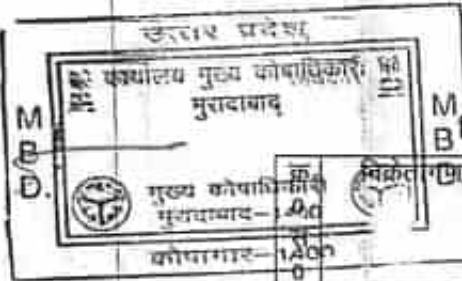 उत्तर प्रदेश
कार्यालय मुख्य कोषाधिकारी
मुरादाबाद
M
B
D.
M
B
D
मुख्य कोषाधिकारी
मुरादाबाद-1400
कोषागार-1400